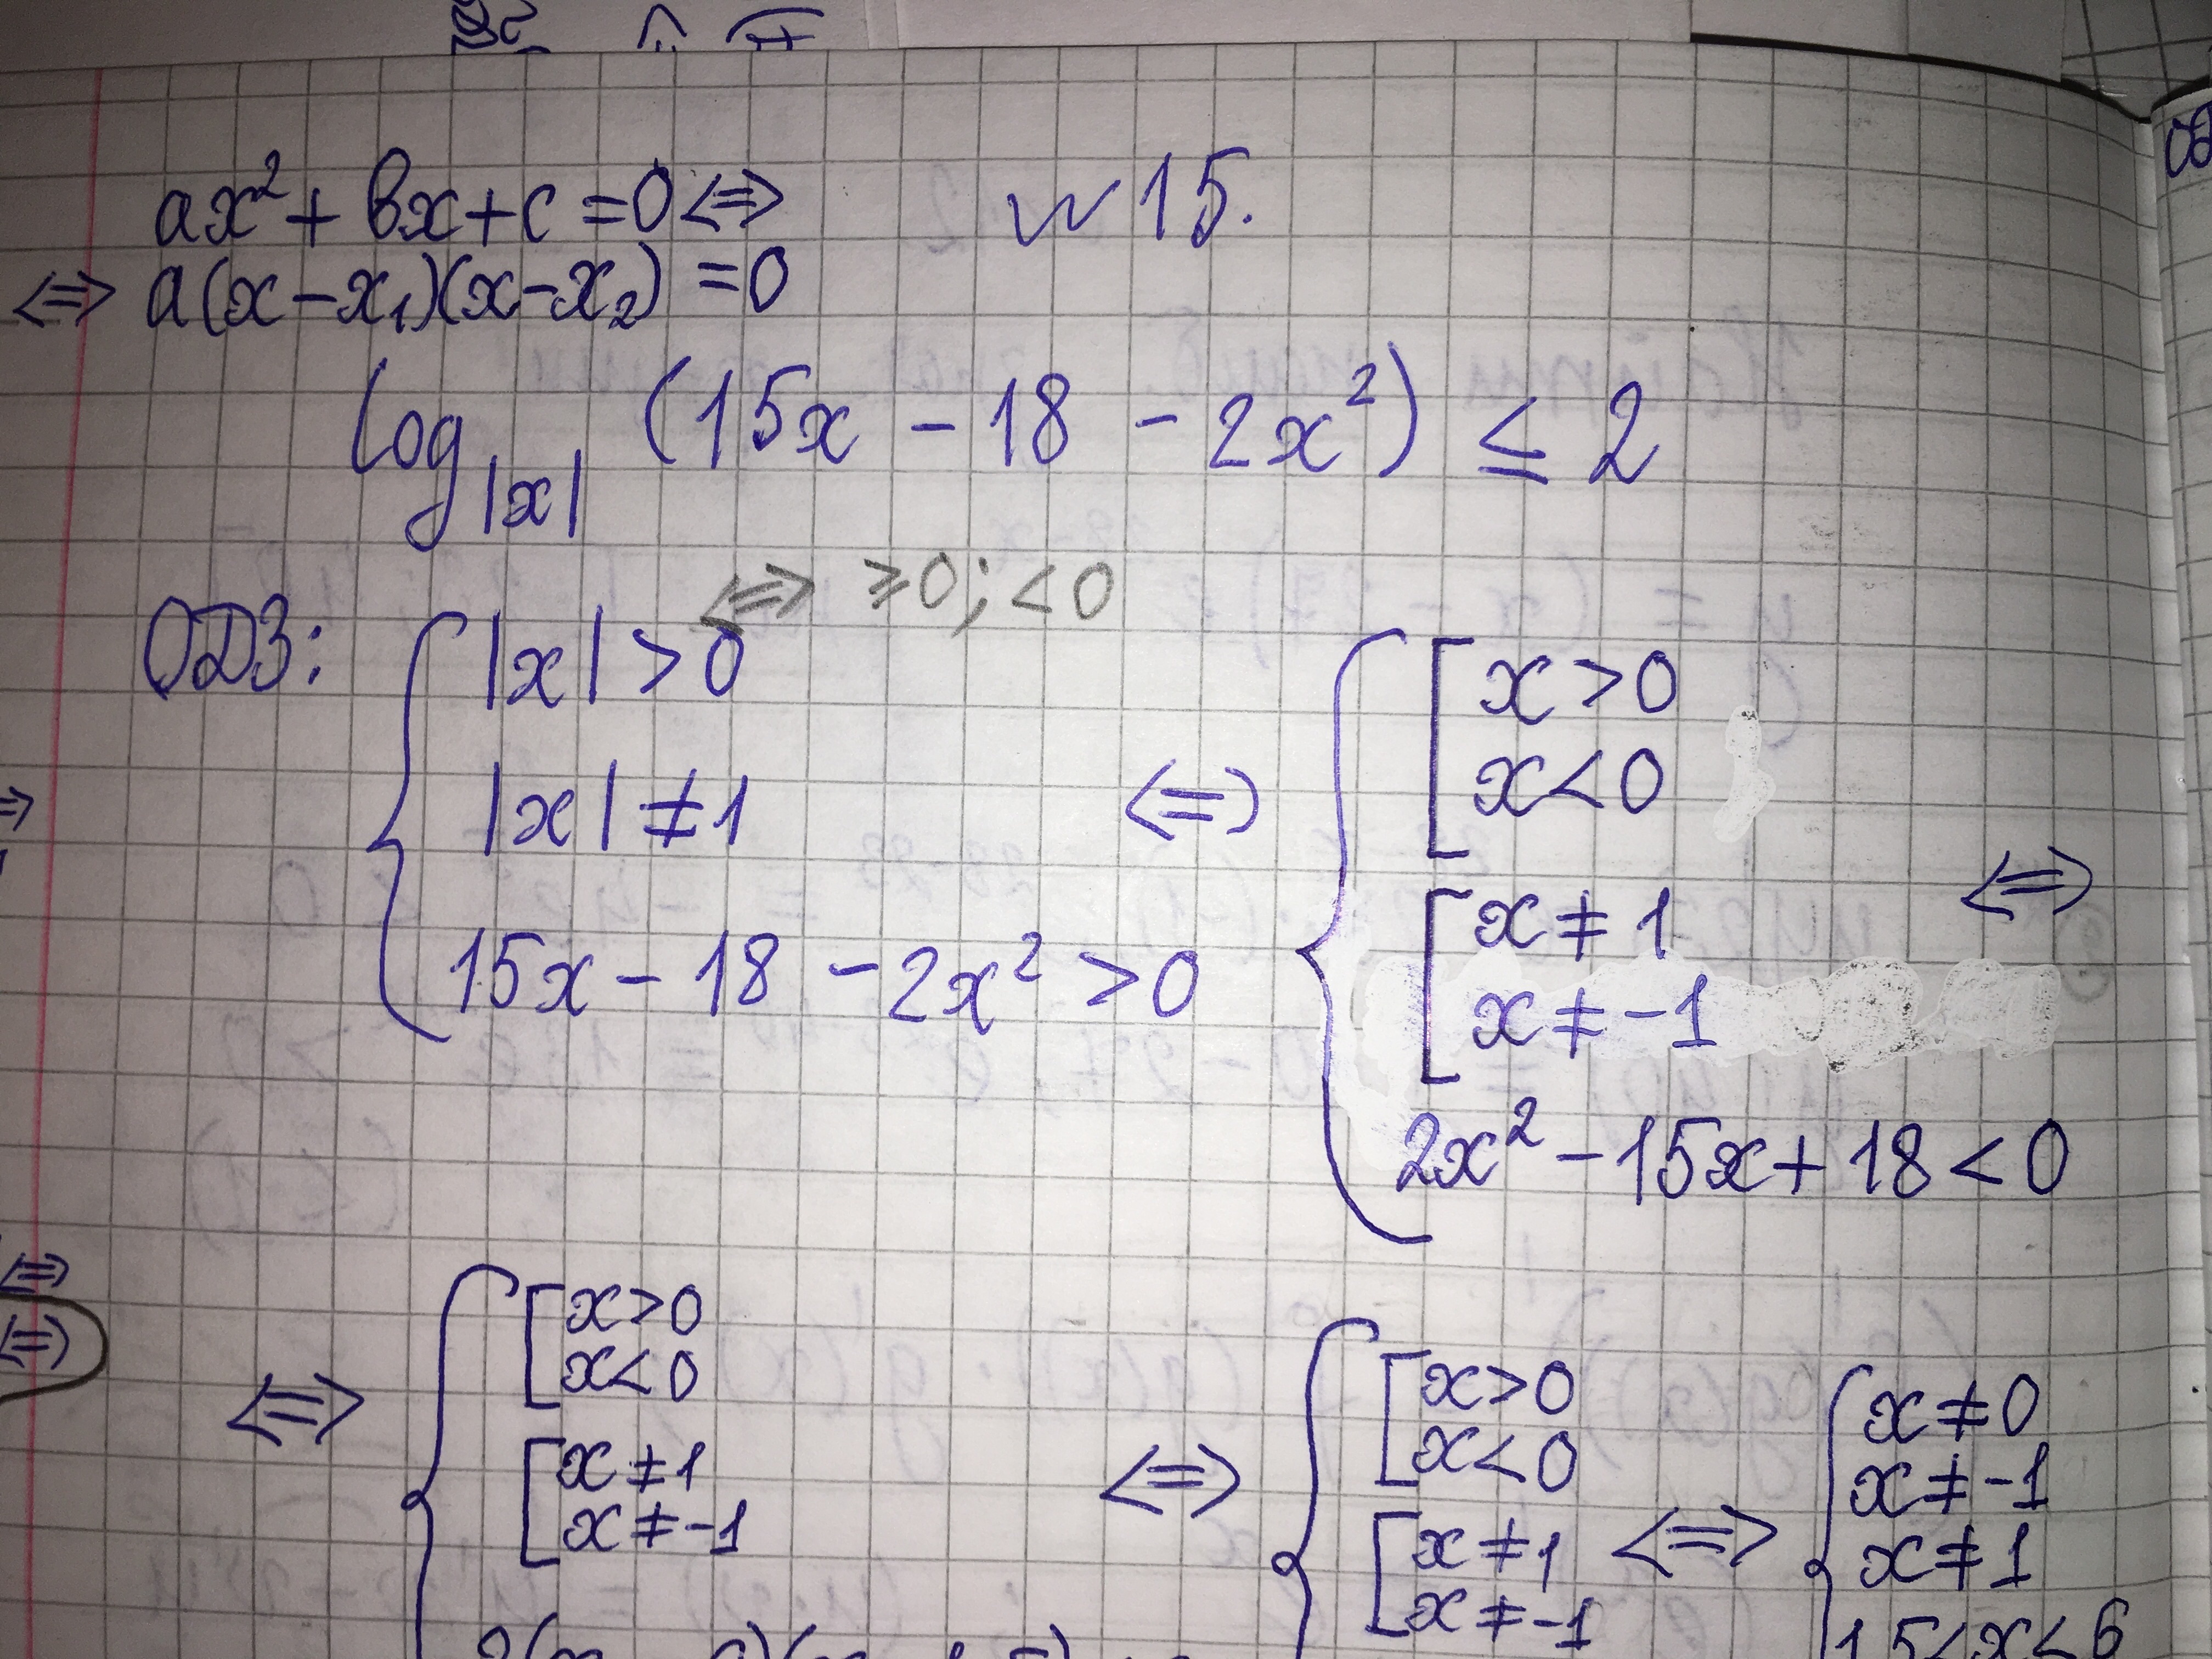 ax² + bx + c = 0 ⇔
⇔ a(x - x₁)(x - x₂) = 0
№ 15.
log|x| (15x - 18 - 2x²) ≤ 2
⇔ ≥0; <0
ОДЗ: { |x| > 0
|x| ≠ 1
15x - 18 - 2x² > 0
⇔ { [ x > 0
x < 0
[ x ≠ 1
x ≠ -1
2x² - 15x + 18 < 0
⇔
⇔ { [ x > 0
x < 0
[ x ≠ 1
x ≠ -1
⇔ { [ x > 0
x < 0
[ x ≠ 1
x ≠ -1
⇔ { x ≠ 0
x ≠ -1
x ≠ 1
1,5 < x < 6